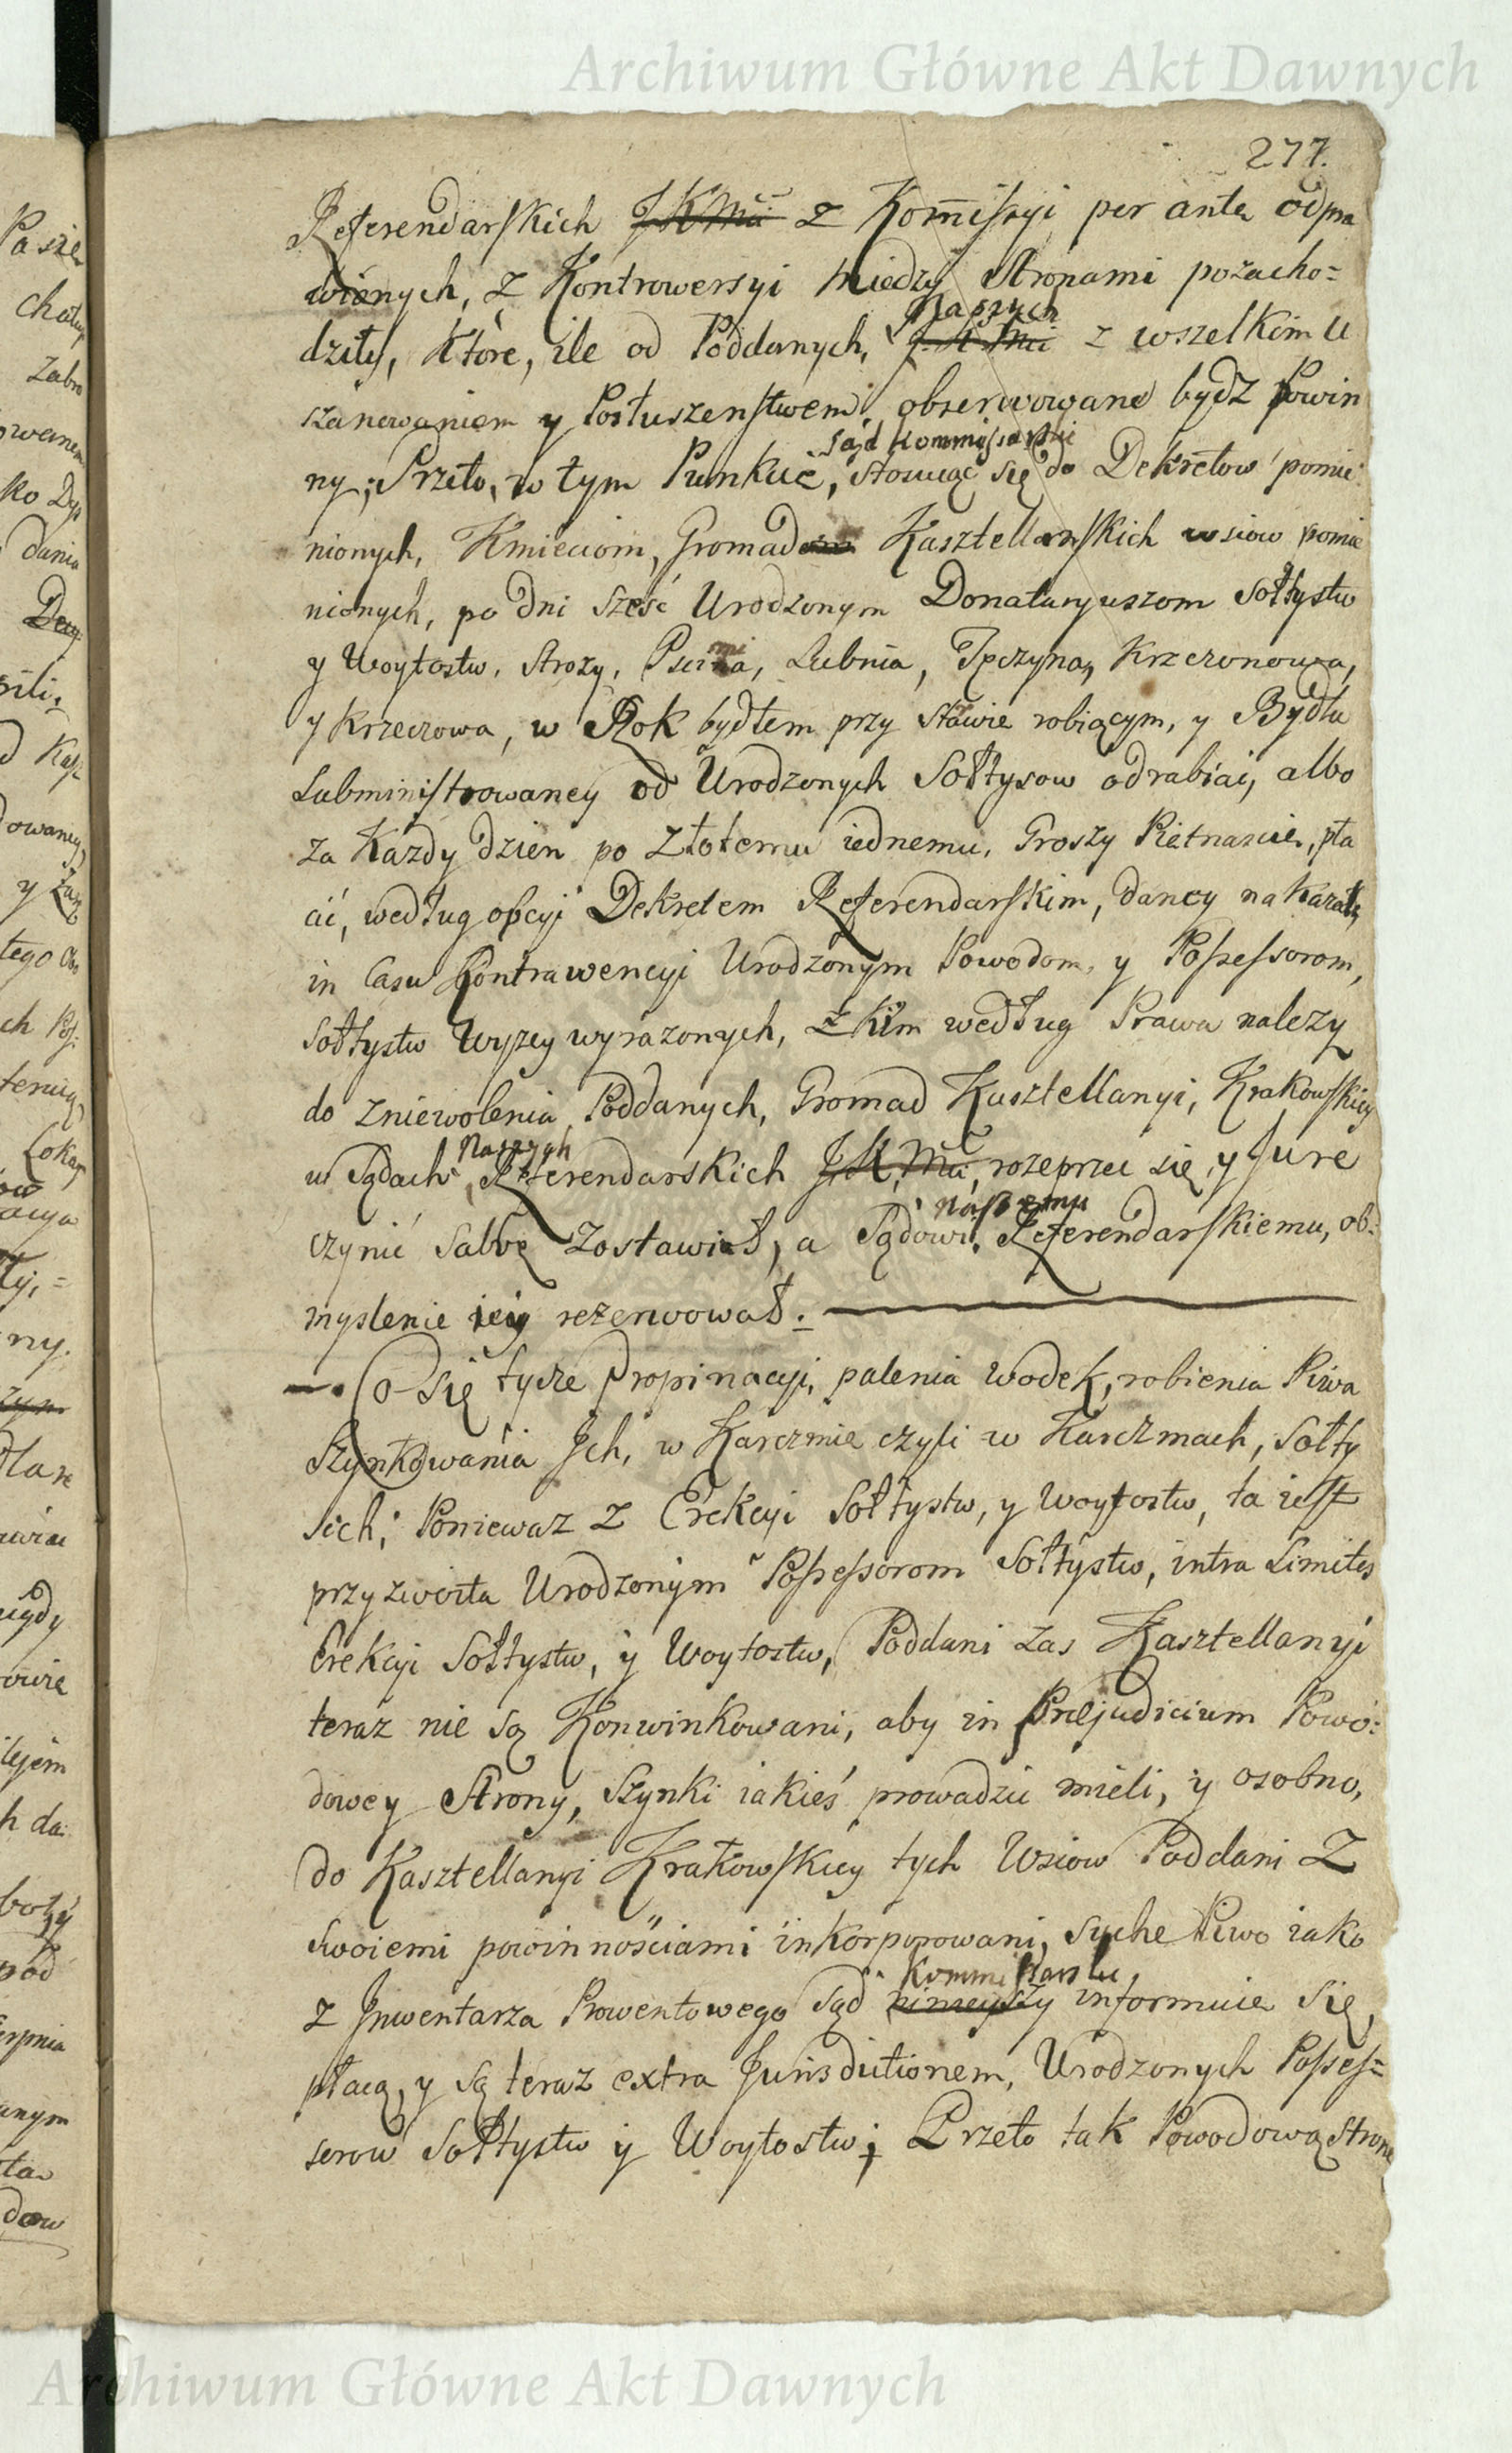 Archiwum Główne Akt Dawnych
277.
Referendarskich J K Mci z Kommissyi per ante odpra
wionych, z Kontrowersyi miedzy Stronami pozacho=
dziły, które, ile od Poddanych, Naszych J K Mci z wszelkim u
szanowaniem y Posłuszenstwem, obserwowane bydz powin
ny; Przeto, w tym Punkcie, Sąd Kommissarski stosuiąc się do Dekretow pomie
nionych, Kmieciom, Gromad Kasztellanskich wsiow pomie
nionych, po dni sześć Urodzonym Donataryuszom Sołtystw
y Woytostw, Stroży, Pcimia, Lubnia, Tęczyna, Krzczonowa,
y Krzeczowa, w Rok bydłem przy stawie robiącym, y Bydłu
Subministrowaney od Urodzonych Sołtysow odrabiać, albo
za Kazdy dzien po Złotemu iednemu, Groszy Pietnascie, pła
cić, według opcyi Dekretem Referendarskim, daney nakazał,
in Casu Kontrawencyi Urodzonym Powodom, y Possessorom,
Sołtystw Wyzey wyrazonych, z kim według Prawa nalezy
do zniewolenia Poddanych, Gromad Kasztellanyi, Krakowskiey
w Sądach Naszych Referendarskich J K Mci, rozeprzec się, y Jure
czynić Salvę zostawił, a Sądowi Naszemu Referendarskiemu, ob=
myslenie iey rezerwował.
— Co się tycze Propinacyi, palenia wodek, robienia Piwa
Szynkowania Jch, w Karczmie czyli w Karczmach, Sołty
sich; Poniewaz z Erekcyi Sołtystw, y Woytostw, ta iest
przyzwoita Urodzonym Possessorom Sołtystw, intra Limites
Erekcyi Sołtystw, y Woytostw, Poddani zas Kasztellanyi
teraz nie są Konwinkowani, aby in Præjudicium Powo=
dowey Strony, Szynki iakieś prowadzić mieli, y osobno,
do Kasztellanyi Krakowskiey tych Wsiow Poddani z
swoiemi powinnościami inkorporowani, suche Piwo iako
z Jnwentarza Prowentowego Sąd Kommissarski ninieyszy informuie się,
płacą, y są teraz extra Jurisdictionem, Urodzonych Posses=
sorow Sołtystw y Woytostw; Przeto tak Powodową Stronę
Archiwum Główne Akt Dawnych